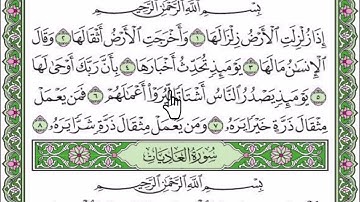 بِسْمِ ٱللَّهِ ٱلرَّحْمَٰنِ ٱلرَّحِيمِ
إِذَا زُلْزِلَتِ ٱلْأَرْضُ زِلْزَالَهَا ١ وَأَخْرَجَتِ ٱلْأَرْضُ أَثْقَالَهَا ٢ وَقَالَ
ٱلْإِنسَٰنُ مَا لَهَا ٣ يَوْمَئِذٍ تُحَدِّثُ أَخْبَارَهَا ٤ بِأَنَّ رَبَّكَ أَوْحَىٰ لَهَا
٥ يَوْمَئِذٍ يَصْدُرُ ٱلنَّاسُ أَشْتَاتًا لِّيُرَوْا۟ أَعْمَٰلَهُمْ ٦ فَمَن يَعْمَلْ
مِثْقَالَ ذَرَّةٍ خَيْرًا يَرَهُۥ ٧ وَمَن يَعْمَلْ مِثْقَالَ ذَرَّةٍ شَرًّا يَرَهُۥ ٨
سُورَةُ العَادِيَاتِ
بِسْمِ ٱللَّهِ ٱلرَّحْمَٰنِ ٱلرَّحِيمِ